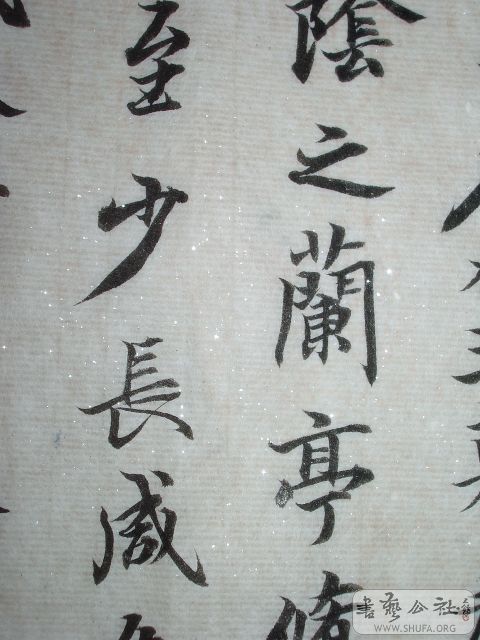 陰之蘭亭脩
至少長咸
書藝公社
WWW.SHUFA.ORG